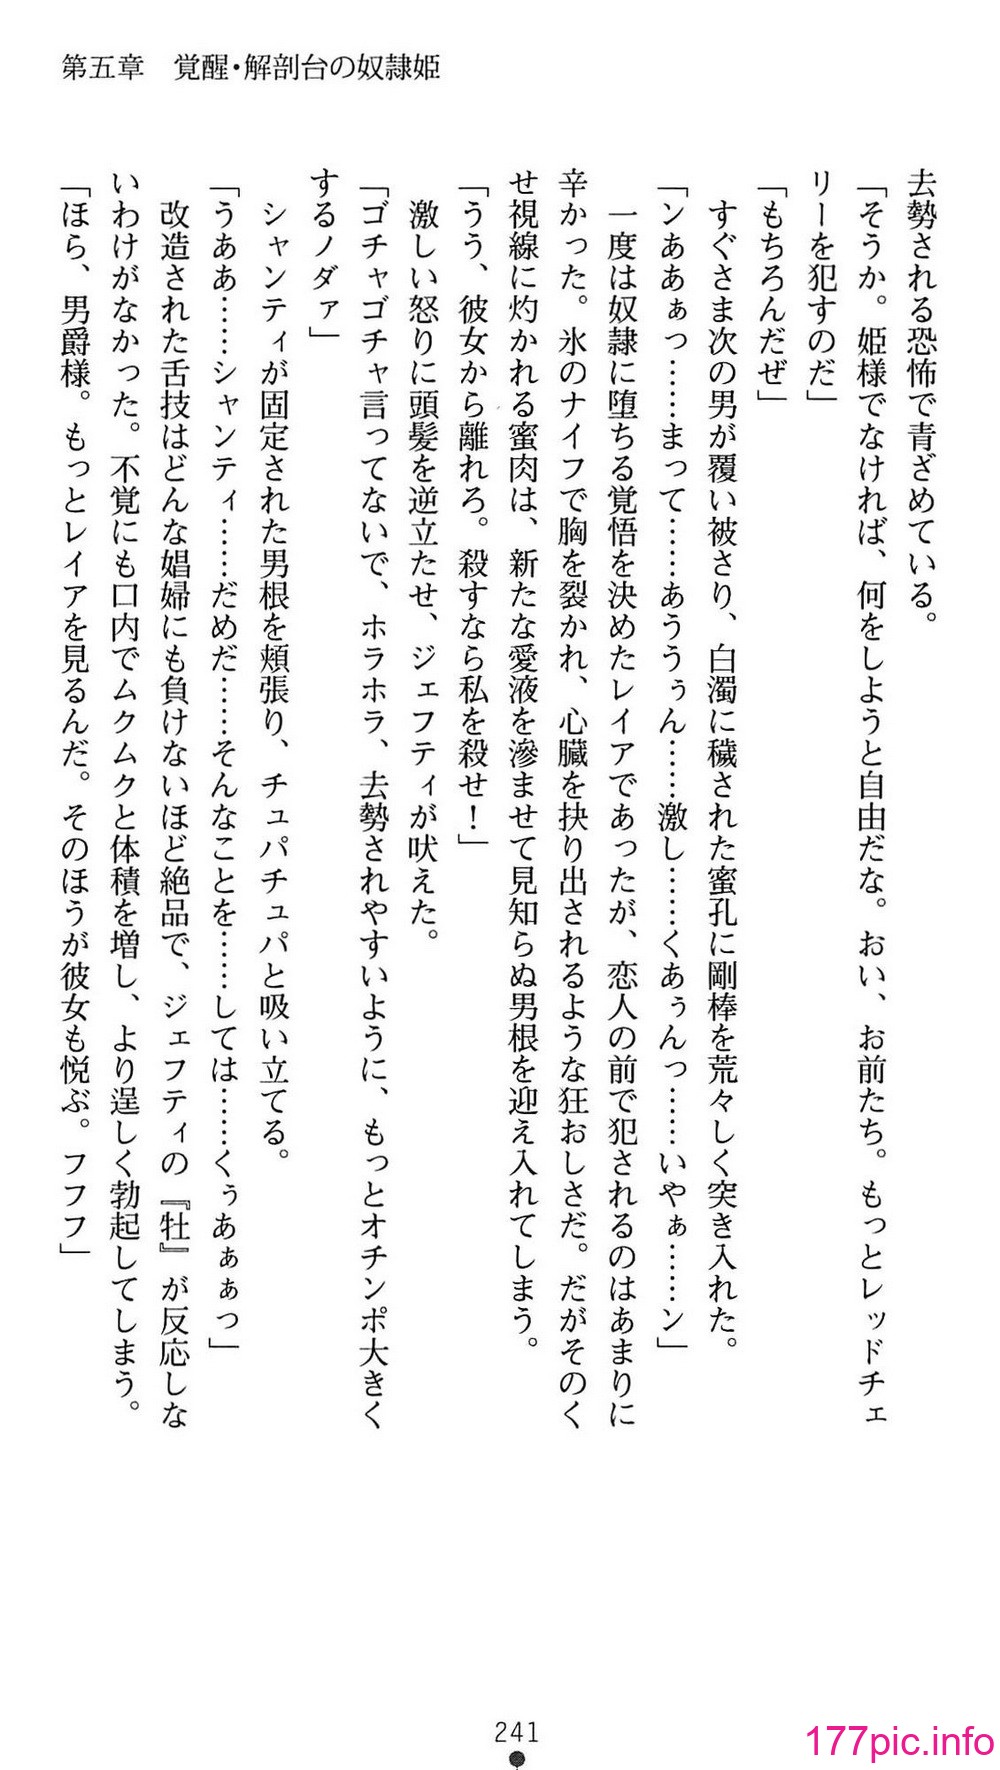 第五章　覚醒・解剖台の奴隷姫
去勢される恐怖で青ざめている。
「そうか。姫様でなければ、何をしようと自由だな。おい、お前たち。もっとレッドチェ
リーを犯すのだ」
「もちろんだぜ」
すぐさま次の男が覆い被さり、白濁に穢された蜜孔に剛棒を荒々しく突き入れた。
「ンああぁっ……まって……あううぅん……激し……くあぅんっ……いやぁ……ン」
一度は奴隷に堕ちる覚悟を決めたレイアであったが、恋人の前で犯されるのはあまりに
辛かった。氷のナイフで胸を裂かれ、心臓を抉り出されるような狂おしさだ。だがそのく
せ視線に灼かれる蜜肉は、新たな愛液を滲ませて見知らぬ男根を迎え入れてしまう。
「うう、彼女から離れろ。殺すなら私を殺せ！」
激しい怒りに頭髪を逆立たせ、ジェフティが吠えた。
「ゴチャゴチャ言ってないで、ホラホラ、去勢されやすいように、もっとオチンポ大きく
するノダァ」
シャンティが固定された男根を頬張り、チュパチュパと吸い立てる。
「うああ……シャンティ……だめだ……そんなことを……しては……くぅあぁぁっ」
改造された舌技はどんな娼婦にも負けないほど絶品で、ジェフティの『牡』が反応しな
いわけがなかった。不覚にも口内でムクムクと体積を増し、より逞しく勃起してしまう。
「ほら、男爵様。もっとレイアを見るんだ。そのほうが彼女も悦ぶ。フフフ」
241
177pic.info